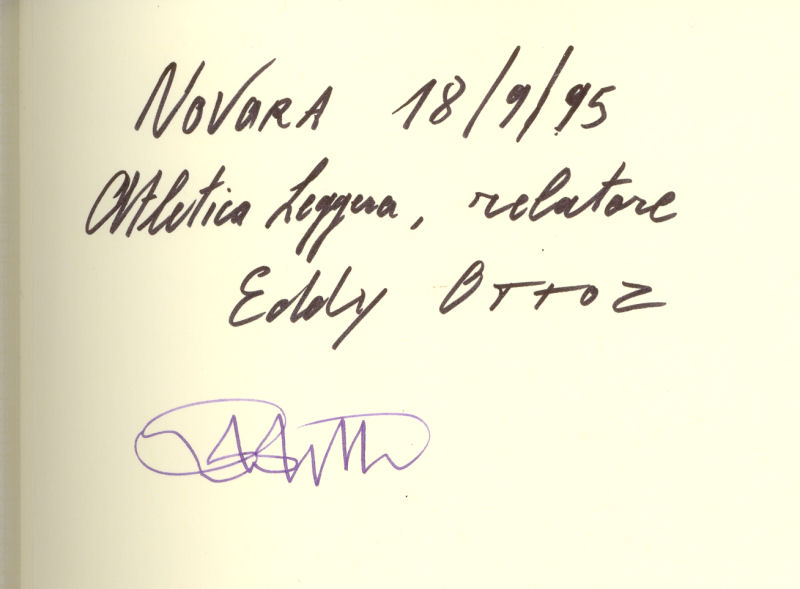 NOVARA 18/9/95
Atletica Leggera, relatore
Eddy OTTOZ